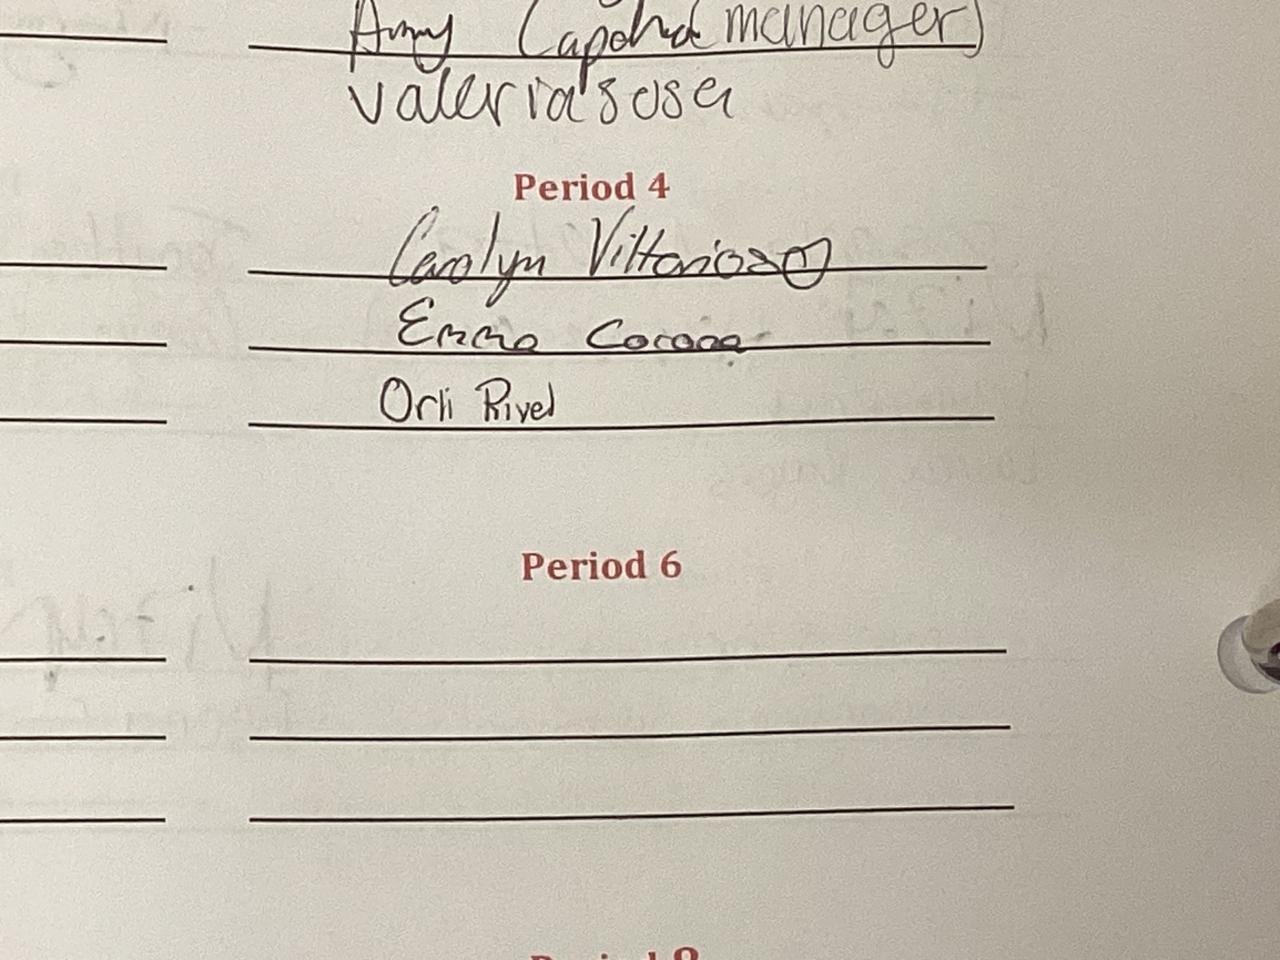 Amy (manager)
Valeria Sosa
Period 4
Carolyn Vittorioso
Emma Corona
Orli Rivel
Period 6
Period 8